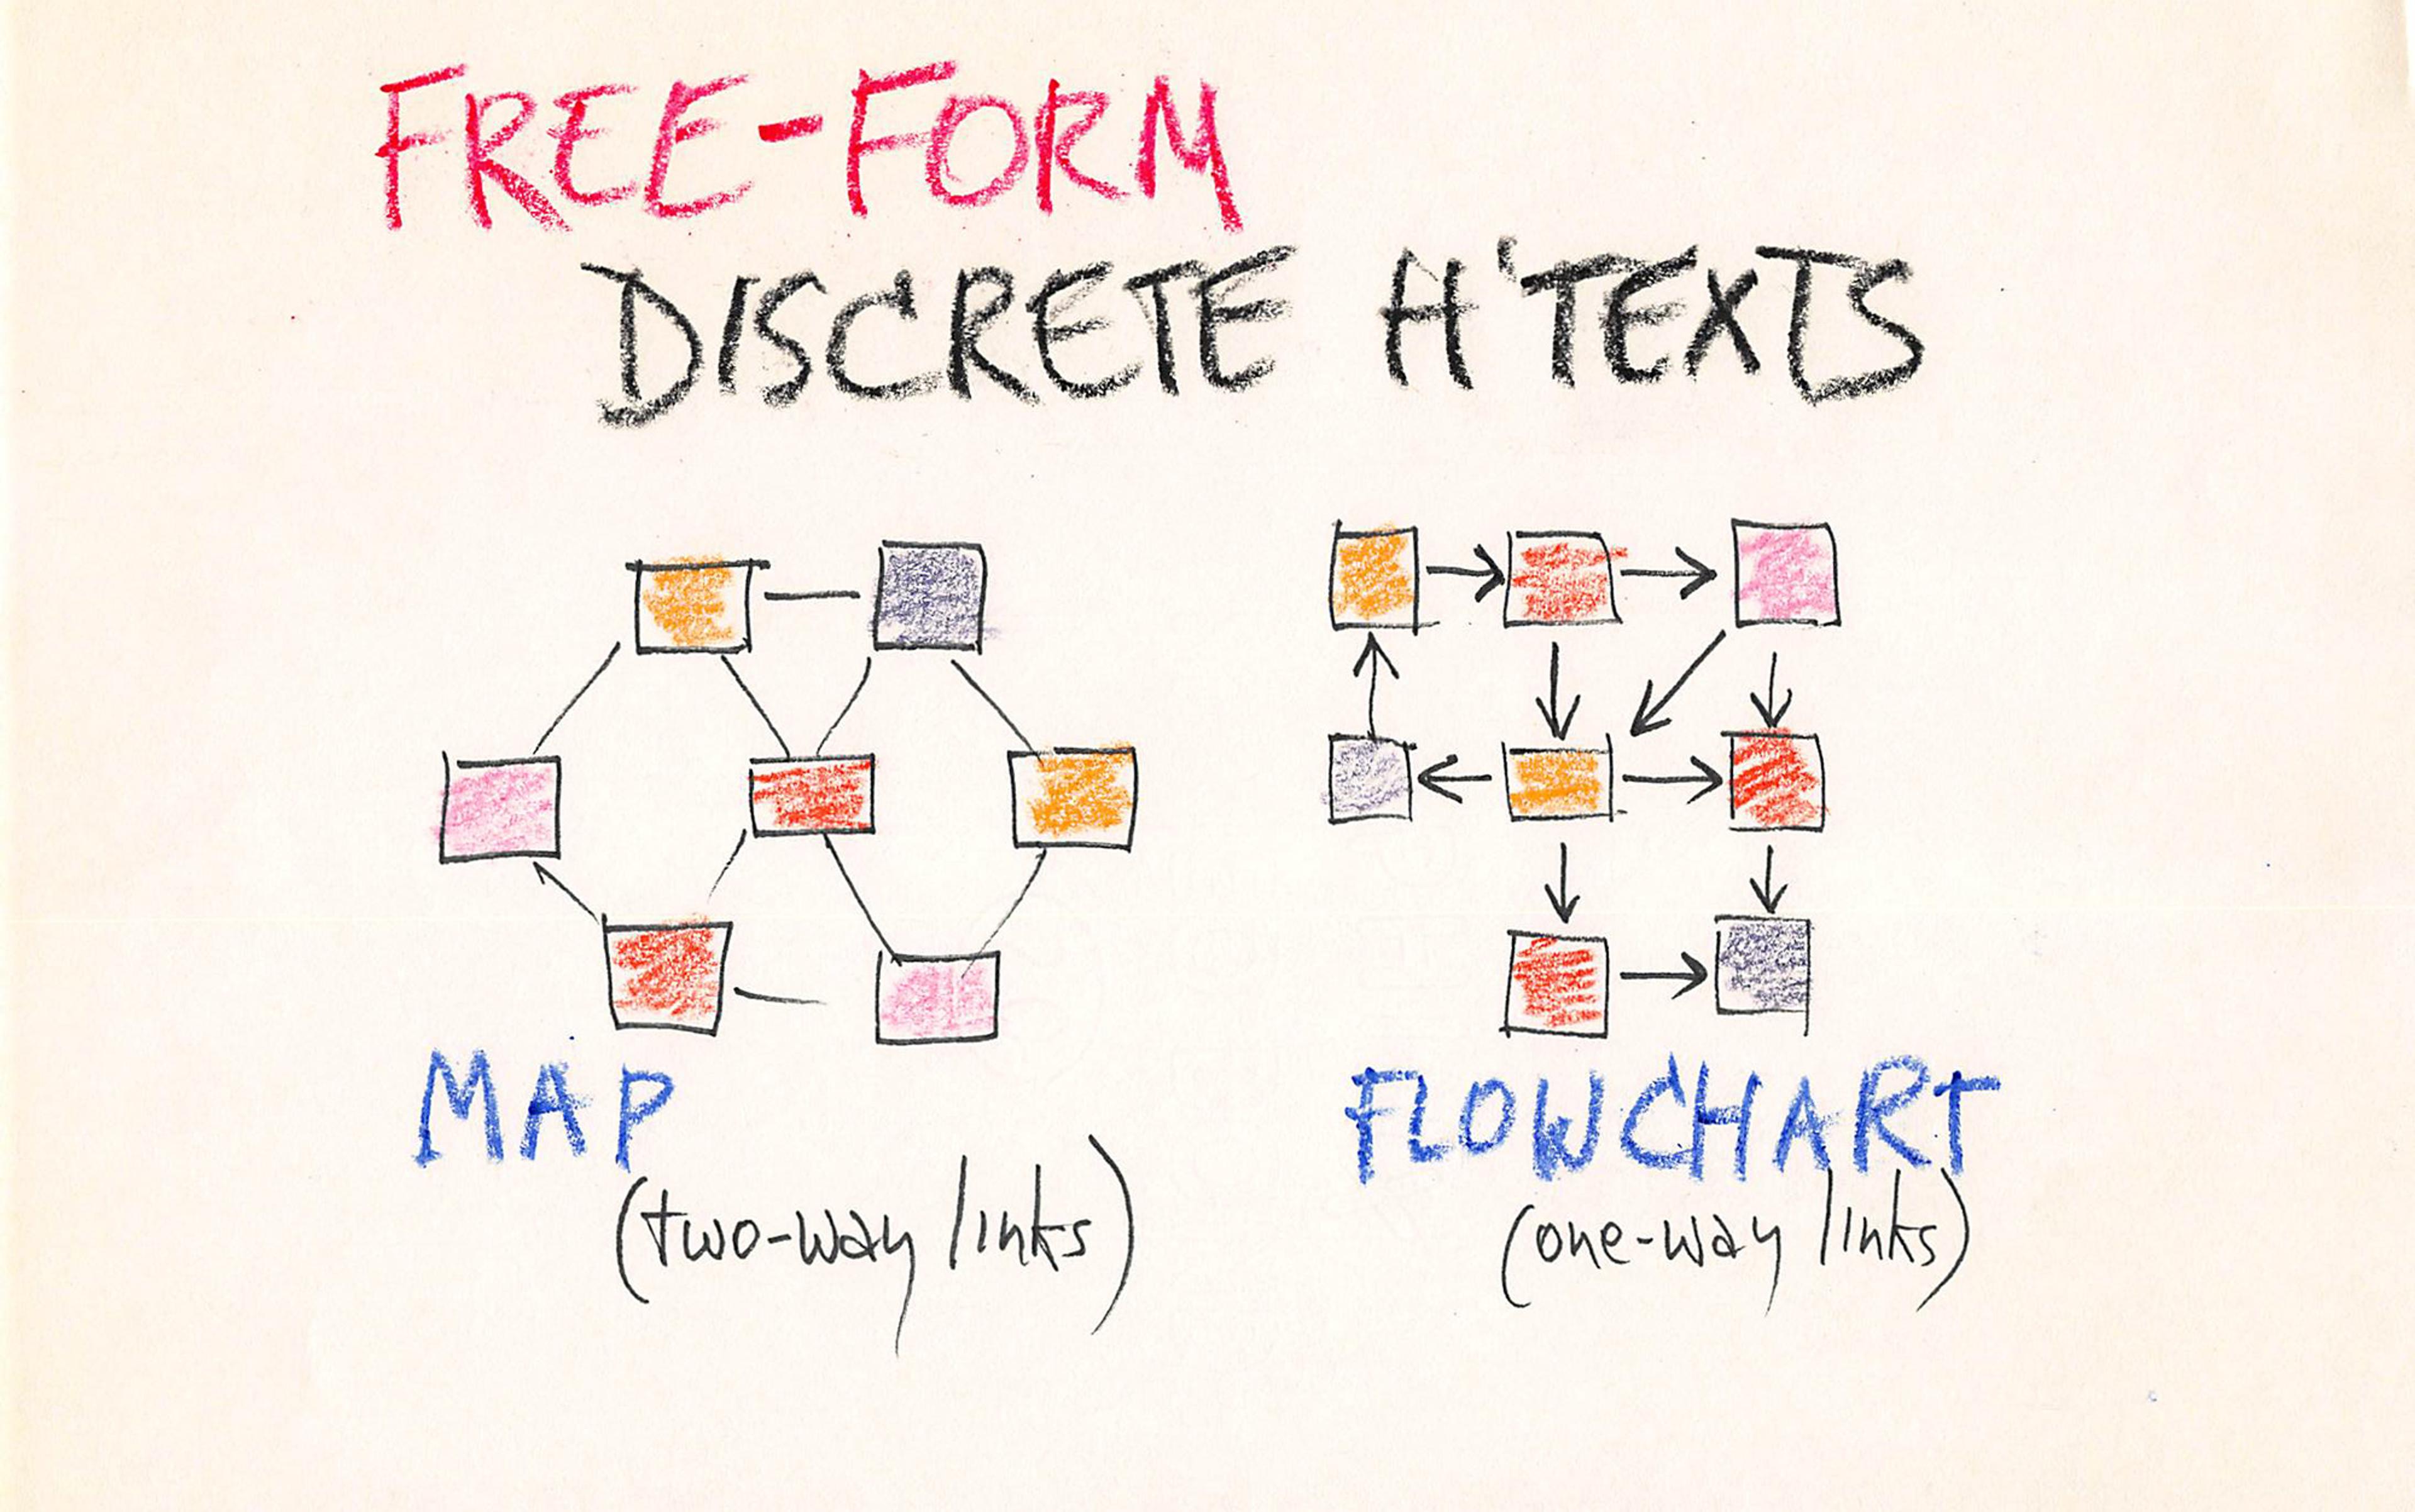 FREE-FORM
DISCRETE H'TEXTS
MAP
(two-way links)
FLOWCHART
(one-way links)